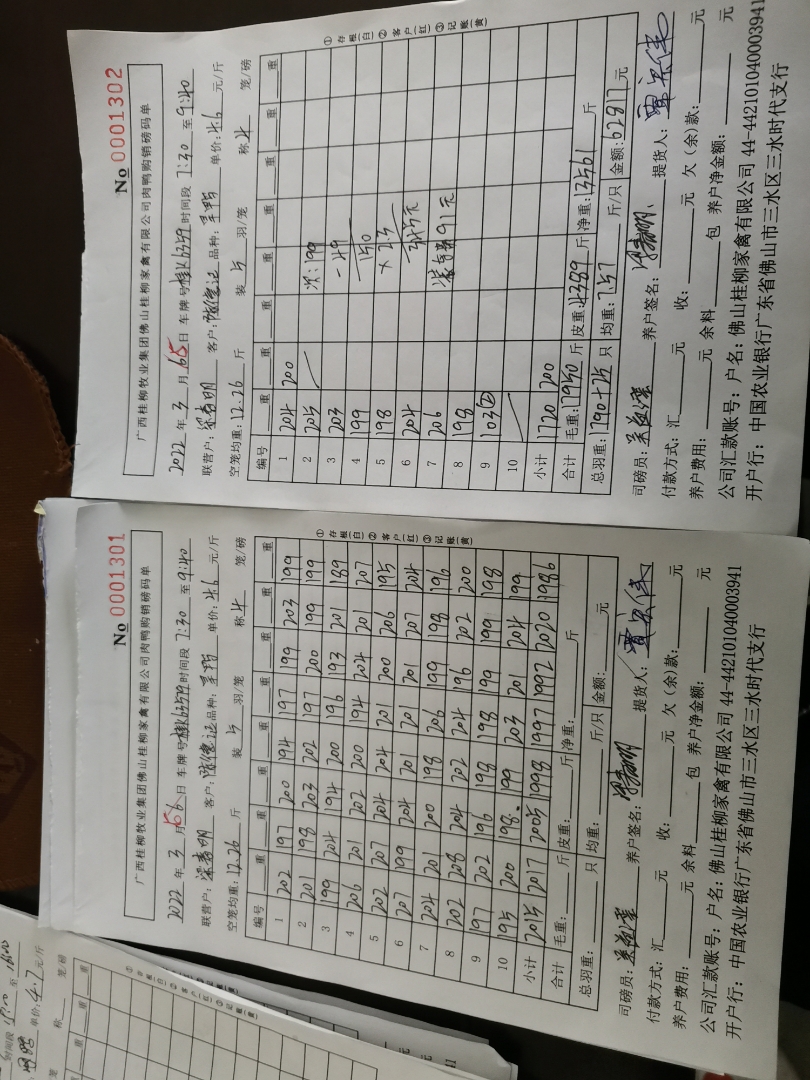 广西桂柳牧业集团佛山桂柳家禽有限公司肉鸭购销磅码单
No 0001302
2022 年 3 月 日 车牌号 时间段 7:30 至 9:40
联营户: 客户: 品种: 单价: 4.6 元/斤
空笼均重: 12.26 斤 装 5 羽/笼 称 4 笼/磅
编号 重 重 重 重 重 重 重 重
1 204 200
2 205 次: 199
3 203 -49
4 199 150
5 198 × 2.3
6 204 345元
7 206 91元
8 198
9 103②
10
小计 1720 200
合计 毛重: 17950 斤 皮重: 4389 斤 净重: 13561 斤
总羽重: 1790+25 只 均重: 7.57 斤/只 金额: 62817 元
司磅员: 养户签名: 提货人:
付款方式: 汇 元 收: 元 欠(余)款: 元
养户费用: 元 余料 包 养户净金额: 元
公司汇款账号: 户名: 佛山桂柳家禽有限公司 44-442101040003941
开户行: 中国农业银行广东省佛山市三水区三水时代支行
①存根(白) ②客户(红) ③记账(黄)
广西桂柳牧业集团佛山桂柳家禽有限公司肉鸭购销磅码单
No 0001301
2022 年 3 月 日 车牌号 时间段 7:30 至 9:40
联营户: 客户: 品种: 单价: 4.6 元/斤
空笼均重: 12.26 斤 装 5 羽/笼 称 4 笼/磅
编号 重 重 重 重 重 重 重 重
1 202 197 200 194 197 199 203 199
2 201 198 203 202 197 200 199 199
3 199 204 194 200 196 193 201 189
4 206 201 202 200 194 204 201 207
5 202 207 204 204 201 200 206 195
6 207 199 204 201 201 201 207 204
7 204 201 200 198 206 199 198 196
8 202 208 204 202 204 196 202 200
9 197 202 196 198 198 199 199 198
10 195 200 198 199 203 201 204 199
小计 2015 2017 2005 1998 1997 1992 2020 1986
合计 毛重: 斤 皮重: 斤 净重: 斤
总羽重: 只 均重: 斤/只 金额: 元
司磅员: 养户签名: 提货人:
付款方式: 汇 元 收: 元 欠(余)款: 元
养户费用: 元 余料 包 养户净金额: 元
公司汇款账号: 户名: 佛山桂柳家禽有限公司 44-442101040003941
开户行: 中国农业银行广东省佛山市三水区三水时代支行
①存根(白) ②客户(红) ③记账(黄)
时间段 至
单价: 4.7 元/斤
称 笼/磅
重 重